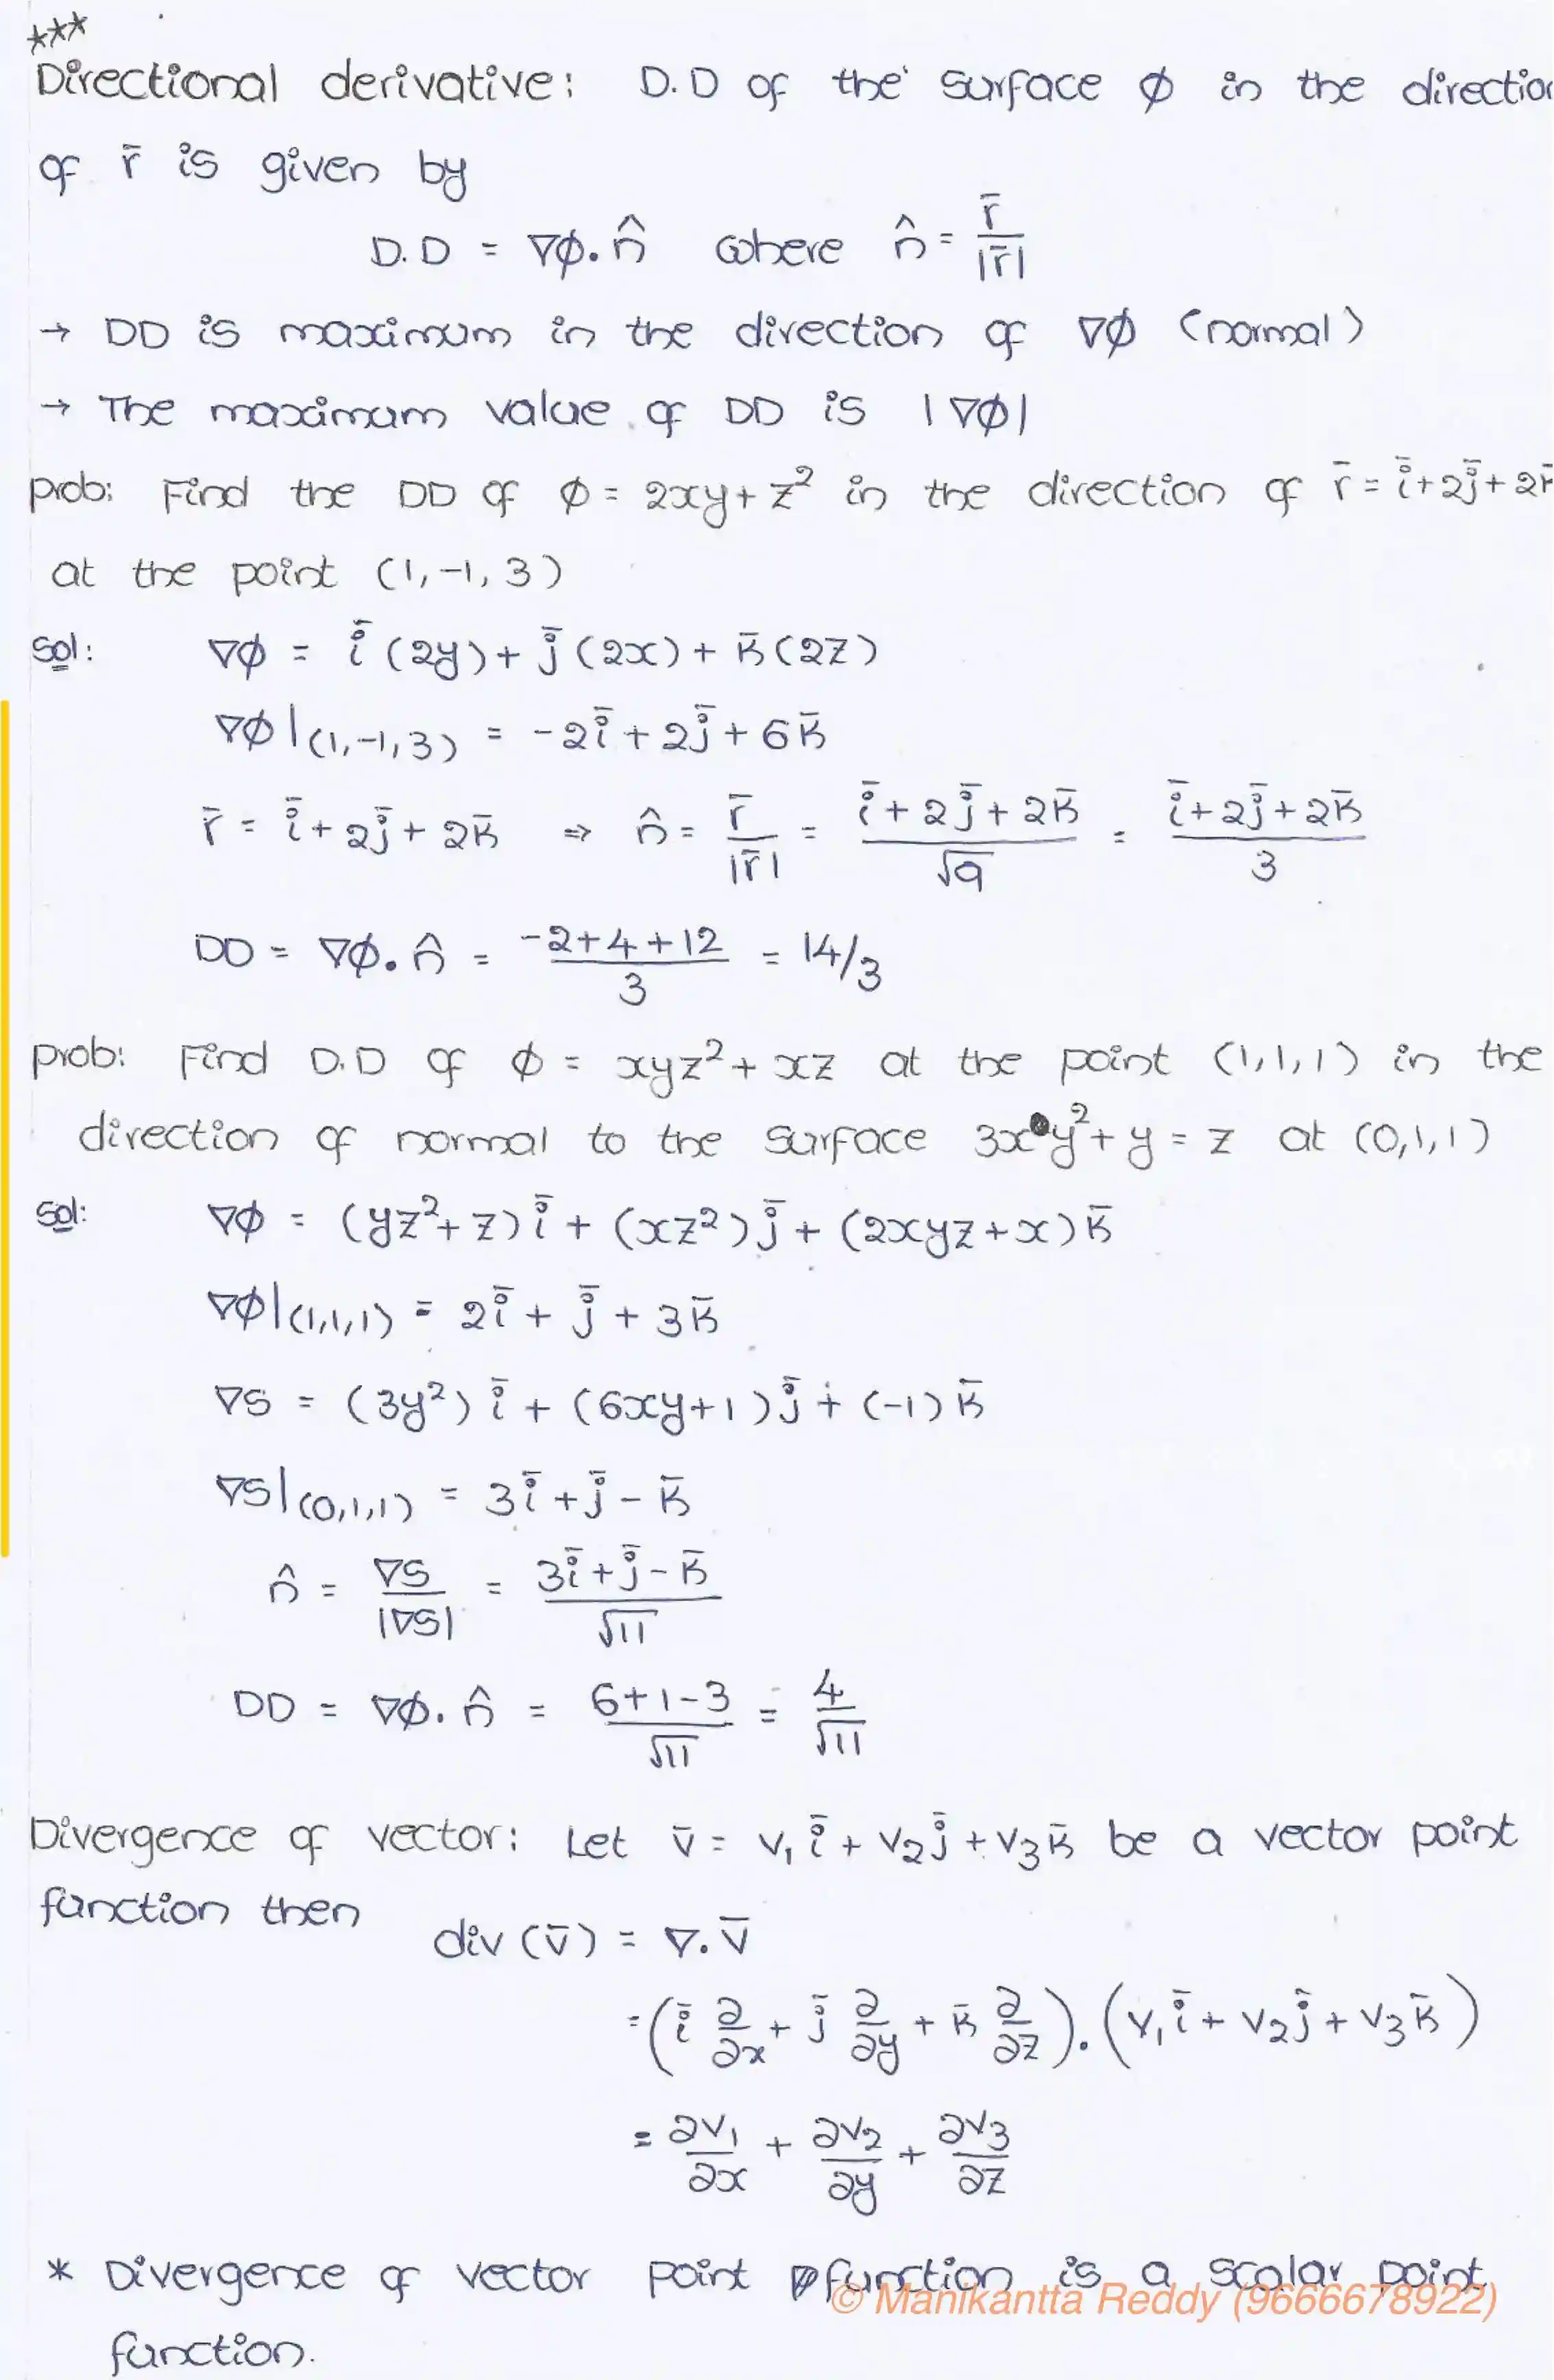 ***
Directional derivative: D.D of the surface ϕ in the direction
of r̄ is given by
D.D = ∇ϕ.n̂ where n̂ = r̄/|r̄|
→ DD is maximum in the direction of ∇ϕ (normal)
→ The maximum value of DD is |∇ϕ|
prob: Find the DD of ϕ = 2xy + z² in the direction of r̄ = ī + 2j̄ + 2k̄
at the point (1, -1, 3)
Sol: ∇ϕ = ī(2y) + j̄(2x) + k̄(2z)
∇ϕ|(1,-1,3) = -2ī + 2j̄ + 6k̄
r̄ = ī + 2j̄ + 2k̄ ⇒ n̂ = r̄/|r̄| = (ī + 2j̄ + 2k̄)/√9 = (ī + 2j̄ + 2k̄)/3
DD = ∇ϕ.n̂ = (-2+4+12)/3 = 14/3
prob: Find D.D of ϕ = xyz² + xz at the point (1,1,1) in the
direction of normal to the surface 3xy² + y = z at (0,1,1)
Sol: ∇ϕ = (yz²+z)ī + (xz²)j̄ + (2xyz+x)k̄
∇ϕ|(1,1,1) = 2ī + j̄ + 3k̄
∇S = (3y²)ī + (6xy+1)j̄ + (-1)k̄
∇S|(0,1,1) = 3ī + j̄ - k̄
n̂ = ∇S/|∇S| = (3ī + j̄ - k̄)/√11
DD = ∇ϕ.n̂ = (6+1-3)/√11 = 4/√11
Divergence of vector: Let v̄ = v₁ī + v₂j̄ + v₃k̄ be a vector point
function then
div(v̄) = ∇.v̄
= (ī ∂/∂x + j̄ ∂/∂y + k̄ ∂/∂z).(v₁ī + v₂j̄ + v₃k̄)
= ∂v₁/∂x + ∂v₂/∂y + ∂v₃/∂z
* Divergence of vector point function is a scalar point
© Manikantta Reddy (9666678922)
function.